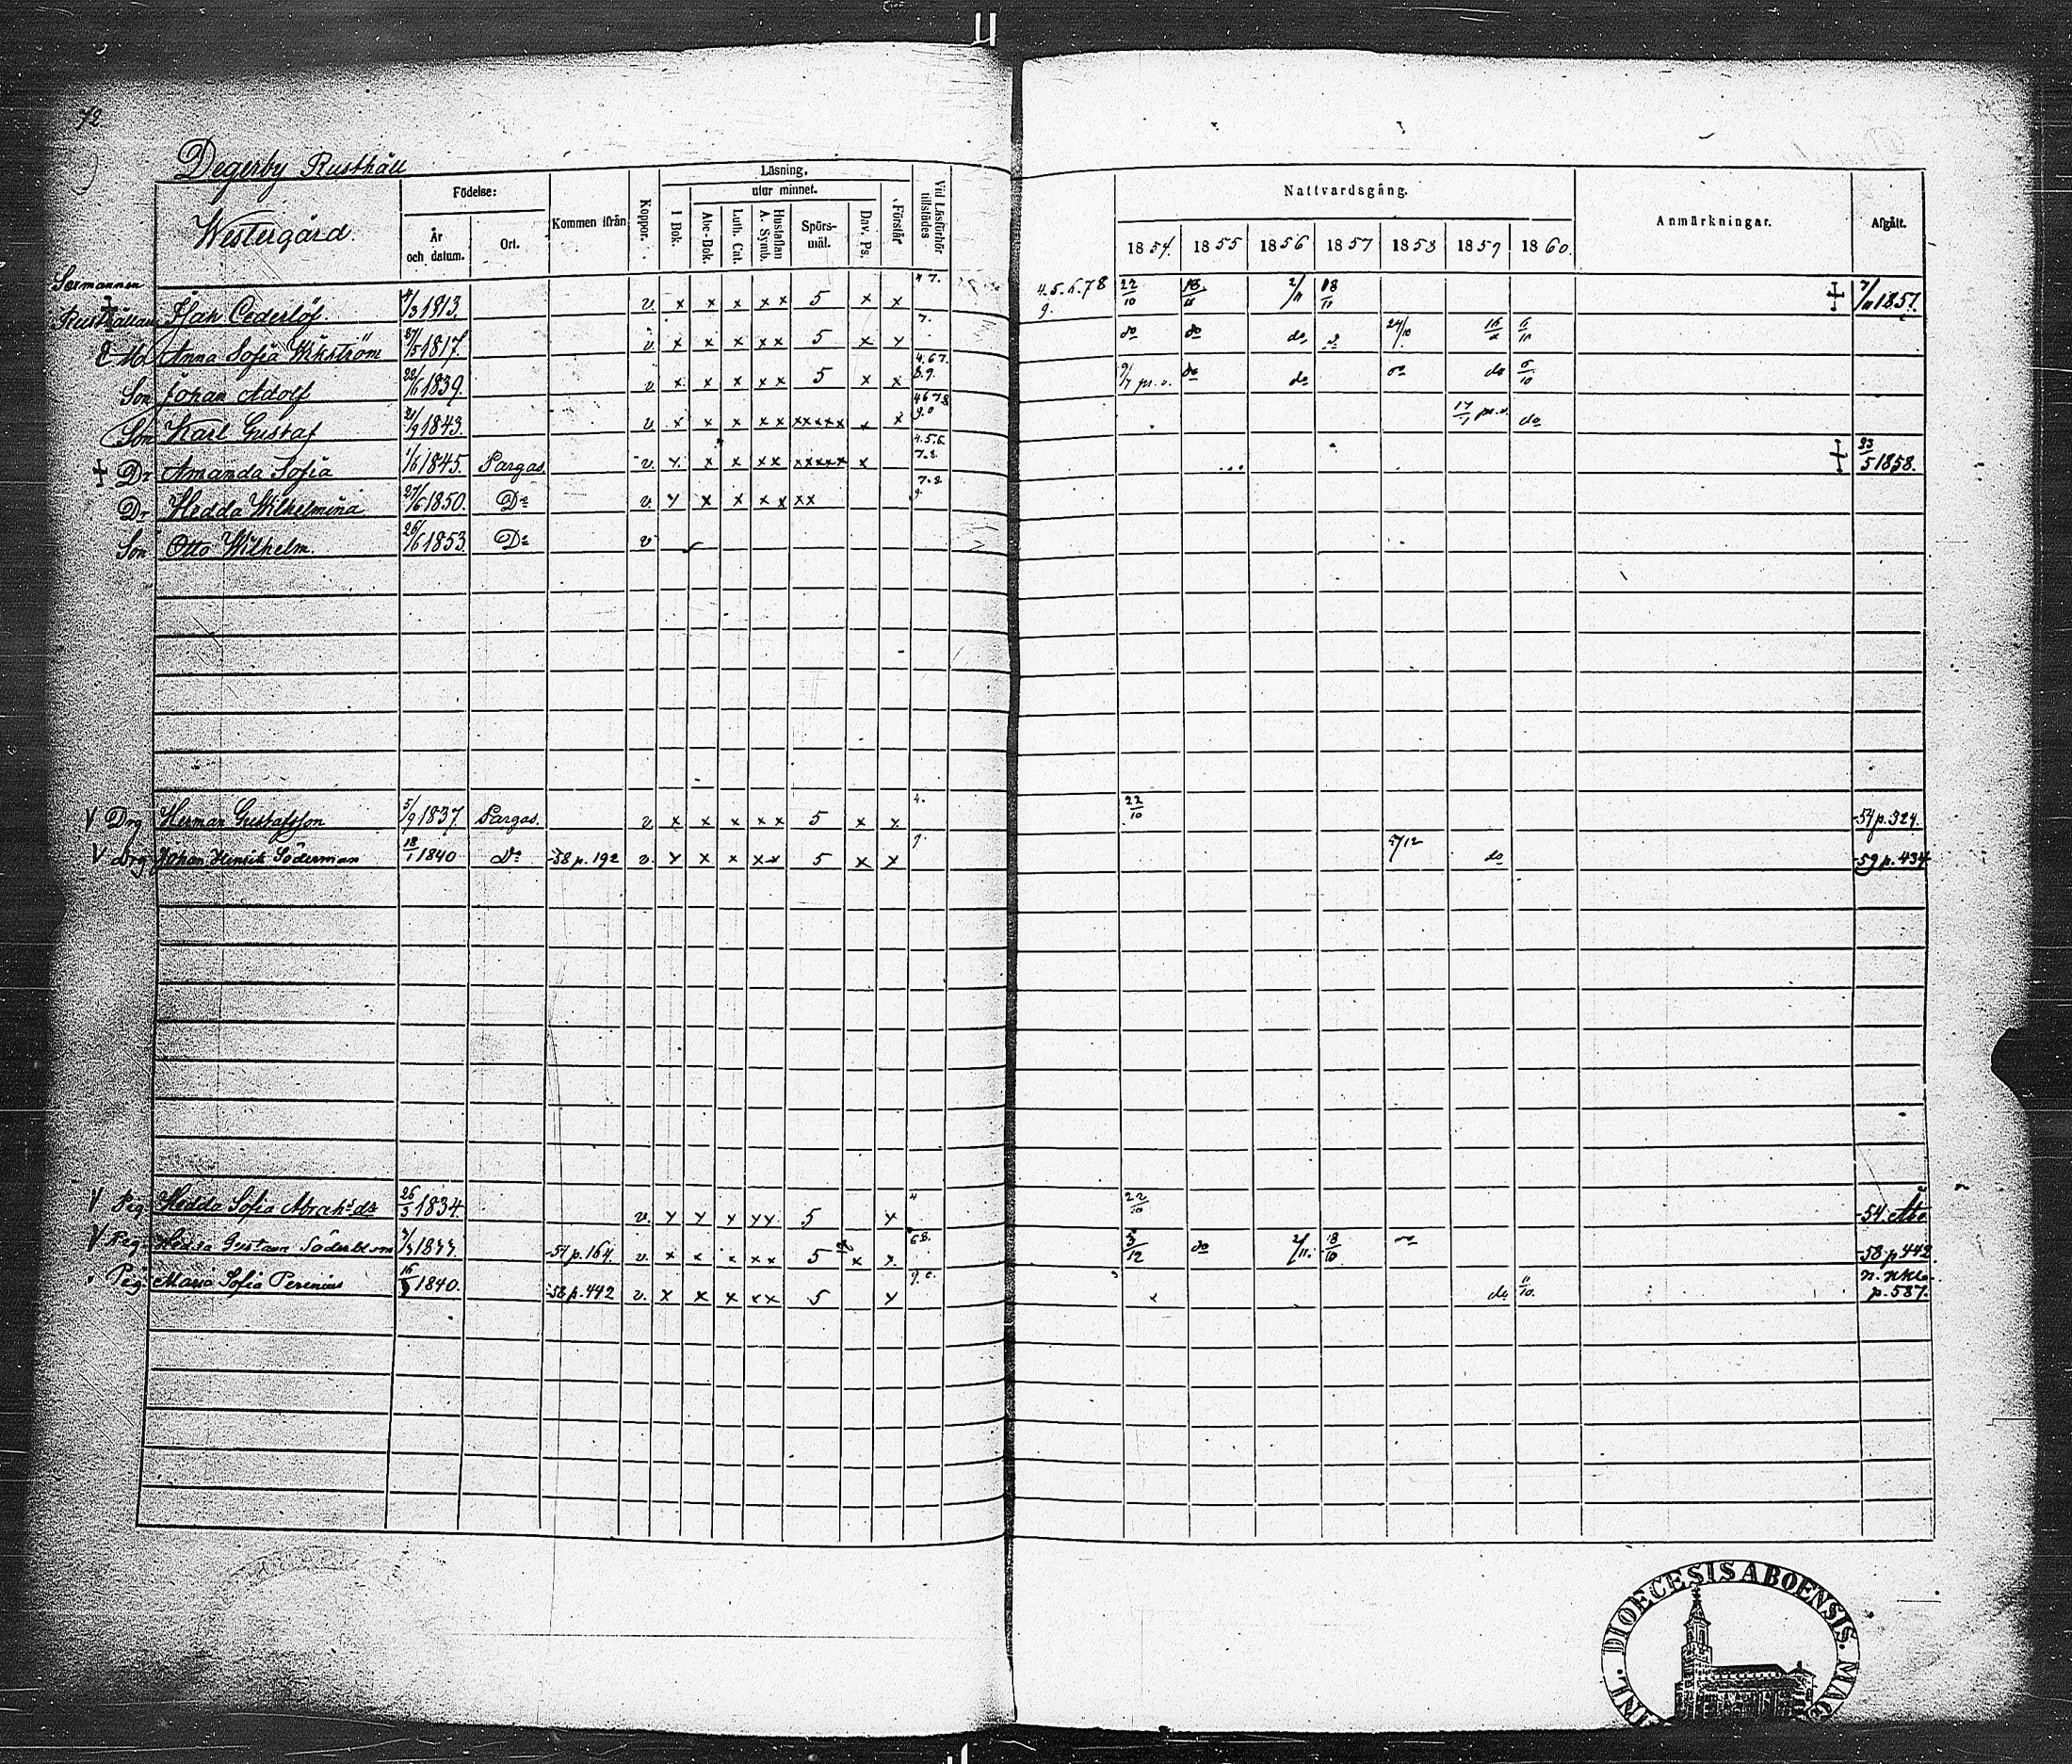 72
Degerby Rusthåll
Westergård.
Födelse:
År och datum.
Ort.
Kommen ifrån
Koppor.
Läsning.
utur minnet.
I Bok.
Abc-Bok.
Luth. Cat.
Hustaflan A. Symb.
Spörsmål.
Dav. Ps.
Förstår
Vid Läsförhör tillstädes
Nattvardsgång.
1854. 1855 1856 1857 1858 1859 1860.
Anmärkningar.
Afgått.
Cederlöf 4/3 1813. v. x x x x x 5 x x 4 7. 4.5.6.7.8 9. 22/10 18/11 2/11 18/11 + 7/11 1857.
Anna Sofia Wikström 27/5 1817. v x x x x x 5 x x 7. do do do 24/10
Son Johan Adolf 22/6 1839. v x x x x x 5 x x 4.6 7. 8.9. do do do 6/10
Son Karl Gustaf 21/9 1843. v x x x x x xxxxx x x 4 6 7 8 9.0 17/7 do
+ Dr Amanda Sofia 1/6 1845. Pargas v. x x x x x xxxxx x 4.5.6. 7.8. + 23/5 1858.
Dr Hedda Wilhelmina 27/6 1850. Do v. x x x x x xx 7.8 9.
Son Otto Wilhelm. 26/6 1853 Do v
V Drg Herman Gustafsson 5/9 1837. Pargas. v x x x x x 5 x x 4. 22/10 -54 p. 324.
V Drg Johan Henrik Söderman 18/1 1840 Do -58 p. 192 v. x x x x x 5 x x 9. 5/12 do -59 p. 434
V Pig Hedda Sofia Abrah:dr 26/5 1834. v. x x x x x 5 x 4 22/10 -54. Åbo
V Pig Gustava Söderblom -54 p. 164. v. x x x x x 5 x x 6 8. 3/12 do 2/11. 18/10 -58 p 442
Pig Maria Sofia 1840. -58 p. 442 v. x x x x x 5 x 9. 0. x do 11/10. p. 587.
DIOECESIS ABOENSIS.